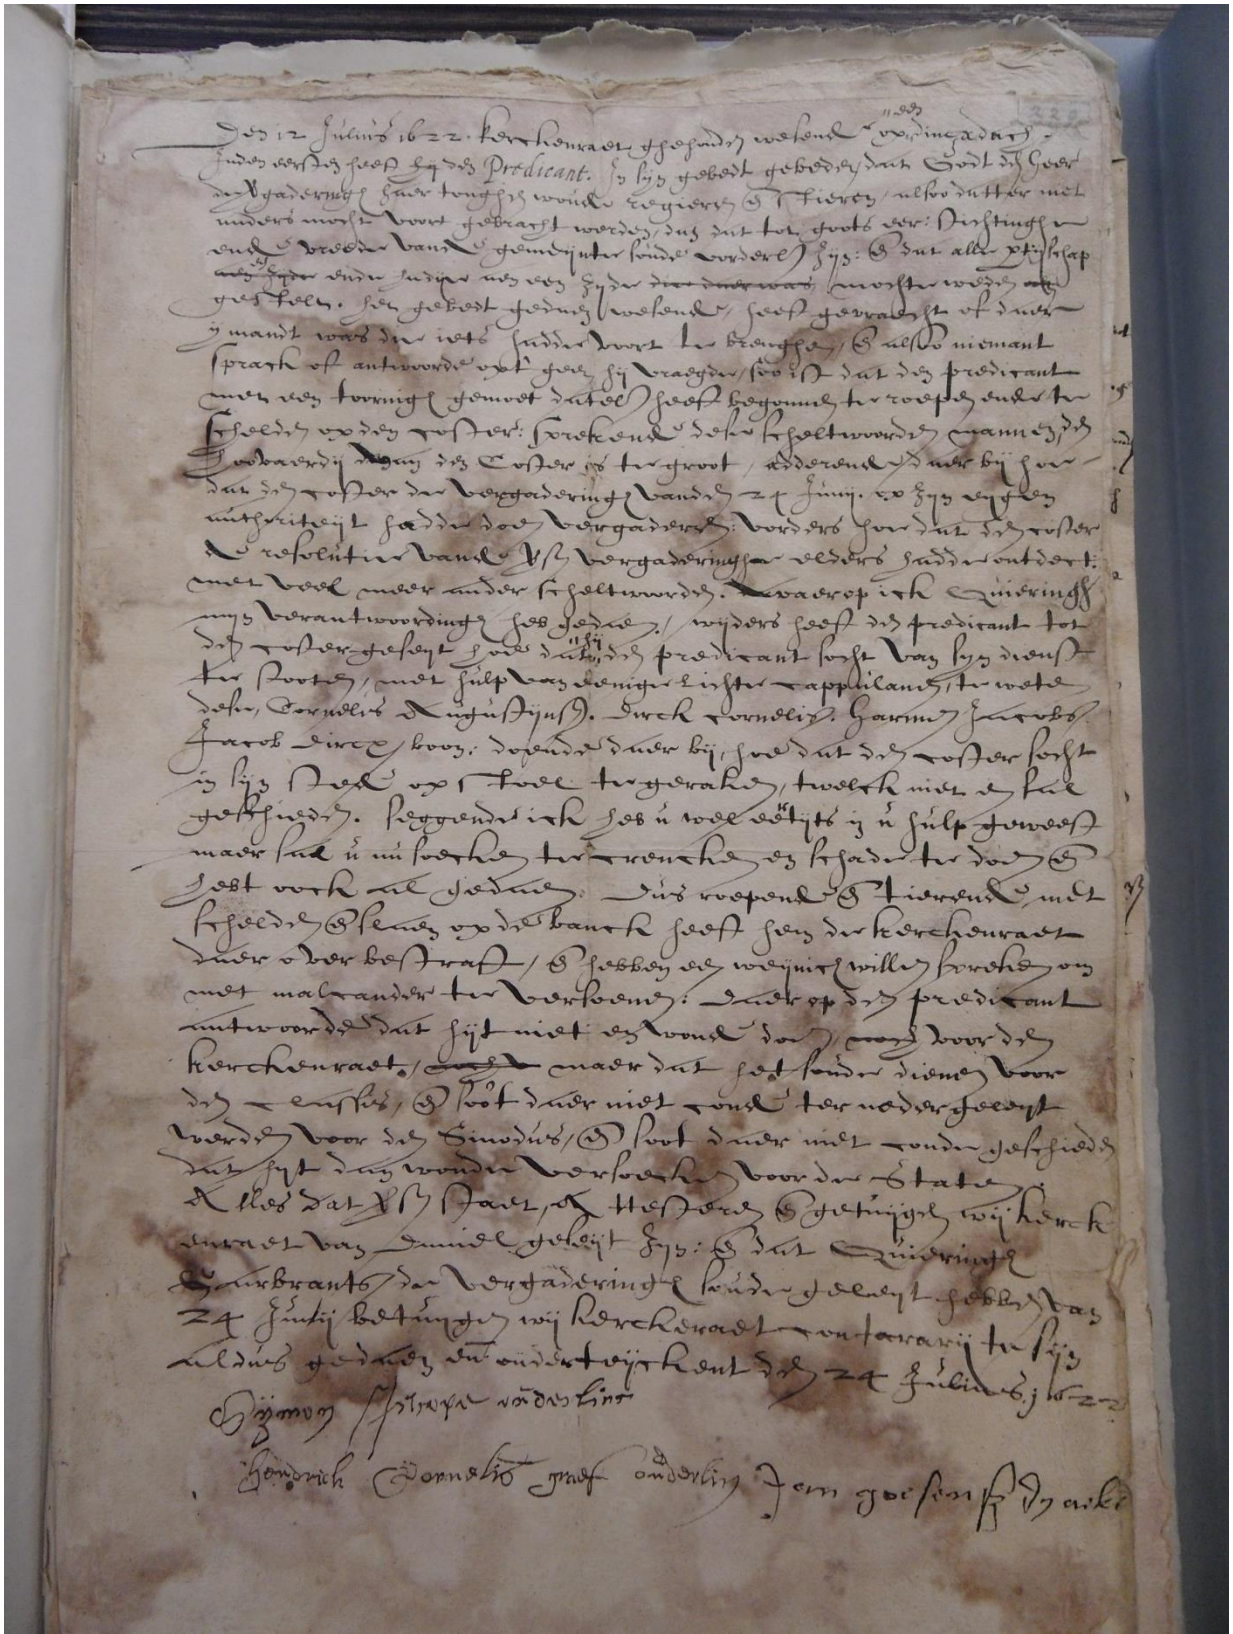 Den 12 Julius 1622. kerckenraet ghehouden wesende een op dinxdach.
Inden eersten heeft hij den Predicant. In sijn gebedt gebeden, dat Godt den Heer
die vgaderingh haer tonghen woude regieren en stieren, alsoo datter niet
anders mocht voort gebracht werden, dan dat tot goots eer: stichtinghe
ende vreede vande gemeijnte soude vorderl zijn: en dat alle ptijschap
ende aen een zijde mochte weden
gestelt. het gebedt gedaen wesende, heeft gevraecht of daer
ijmandt was die iets hadde voort te brenghen, en alsoo niemant
sprack of antwoorde opt geen hij vraegde, soo ist dat den predicant
met een toornigh gemoet datel heeft begonnen te roepen ende te
schelden op den coster: sprekende dese scheltwoorden mannen, den
hoovaerdij van den Coster is te groot, adderende daer bij hoe
dat den coster die vergaderingh vanden 24 Junij. op zijn eijgen
authoriteijt hadde doen vergaderen: vorders hoe dat den coster
de resolutie vande vergaderinghe elders hadde ontdect:
met veel meer ander scheltwoorden. waerop ick Quieringh
mijn verantwoordingh heb gedaen, wijders heeft den predicant tot
den coster geseijt hoe dat hij den predicant socht van sijn dienst
te stooten, met hulp van eenige lichte cappulanen, te weten
dese, Cornelis Augustijns. Dirck cornelis. Harmen Jacobs.
Jacob Dircx, koon: doende daer bij, hoe dat den coster socht
in sijn stede op stoel te geraken, twelck niet en sal
geschieden. seggende ick heb u wel eertijts in u hulp geweest
maer sal u nu soecken te crencken en schade te doen en
hebt oock al gedaen. Dus roepende en tierende, met
schelden en slaen op de banck heeft hem die kerckenraet
daer over bestraft, en hebben een weijnich willen spreken om
met malcander te versoenen: daer op den predicant
antwoorde dat hijt niet en woude doen, voor den
kerckenraet, maer dat het soude dienen voor
den classis, en soot daer niet conde ter neder geleijt
werden voor den Sinodus, en soot daer niet conde geschieden
dat hijt dan woude versoecken voor die Staten.
Alles dat staet, Attesteren en getuijgen wij kerck
enraet van Daniel geseijt zijn: en dat Quieringh
Sijbrants, die vergaderingh soude geleijt hebben van
24 Junij betuijgen wij kerckeraet contrarij te sijn
aldus gedaen en onderteijckent den 24 Julius, 1622
Sijmon Schepe ouderlinc
Hendrick Cornelis graef ouderling Jan goesens dyaeke